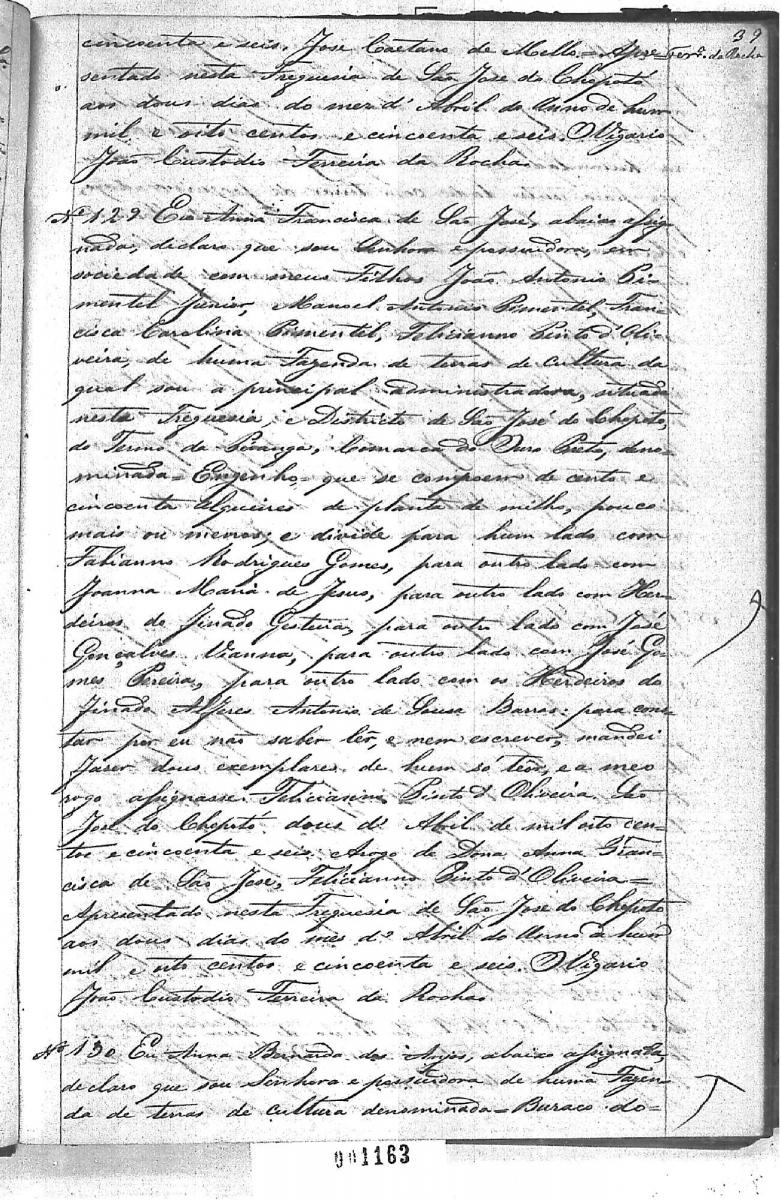 39
cincoenta e seis. Jose Caetano de Mello = Apre= Ferrª. da Rocha
sentado nesta Freguesia de São Jose do Chopotó
aos dous dias do mez d'Abril do Anno de hum
mil e oito centos e cincoenta e seis. O Vigario
João Custodio Ferreira da Rocha.
Nº 129 Eu Anna Francisca de São José, abaixo assig-
nada, declaro que sou Senhora e possuidora, em
sociedade com meus Filhos João Antonio Pi-
mentel Junior, Manoel Antonio Pimentel, Fran-
cisca Carolina Pimentel, Felicianno Pinto d'Oli-
veira, de huma Fazenda de terras de cultura da
qual sou a principal administradora, situada
nesta Freguesia, e Districto de São José do Chopoto,
do Termo da Piranga, Comarca do Ouro Preto, deno-
minada = Engenho = que se compoem de cento e
cincoenta alqueires de planta de milho, pouco
mais ou menos, e divide para hum lado com
Fabianno Rodrigues Gomes, para outro lado com
Joanna Maria de Jesus, para outro lado com Her-
deiros do Finado Gesteira, para outro lado com José
Gonçalves Vianna, para outro lado com José Go-
mes Pereira, para outro lado com os Herdeiros do
Finado Alferes Antonio de Sousa Barros: para cons-
tar por eu não saber lêr, e nem escrever, mandei
fazer dous exemplares de hum só teôr, e a meo
rogo assignasse Felicianno Pinto d'Oliveira. São
Jose do Chopotó dous d'Abril de mil oito cen-
tos e cincoenta e seis. Arogo de Dona Anna Fran-
cisca de São Jose, Felicianno Pinto d'Oliveira =
Apresentado nesta Freguesia de São Jose do Chopoto
aos dous dias do mês d'Abril do Anno de hum
mil e oito centos e cincoenta e seis. O Vigario
João Custodio Ferreira da Rocha.
Nº 130 Eu Anna Bernarda dos Anjos, abaixo assignada,
declaro que sou Senhora e possuidora de huma Fazen-
da de terras de cultura denominada = Buraco do =
001163